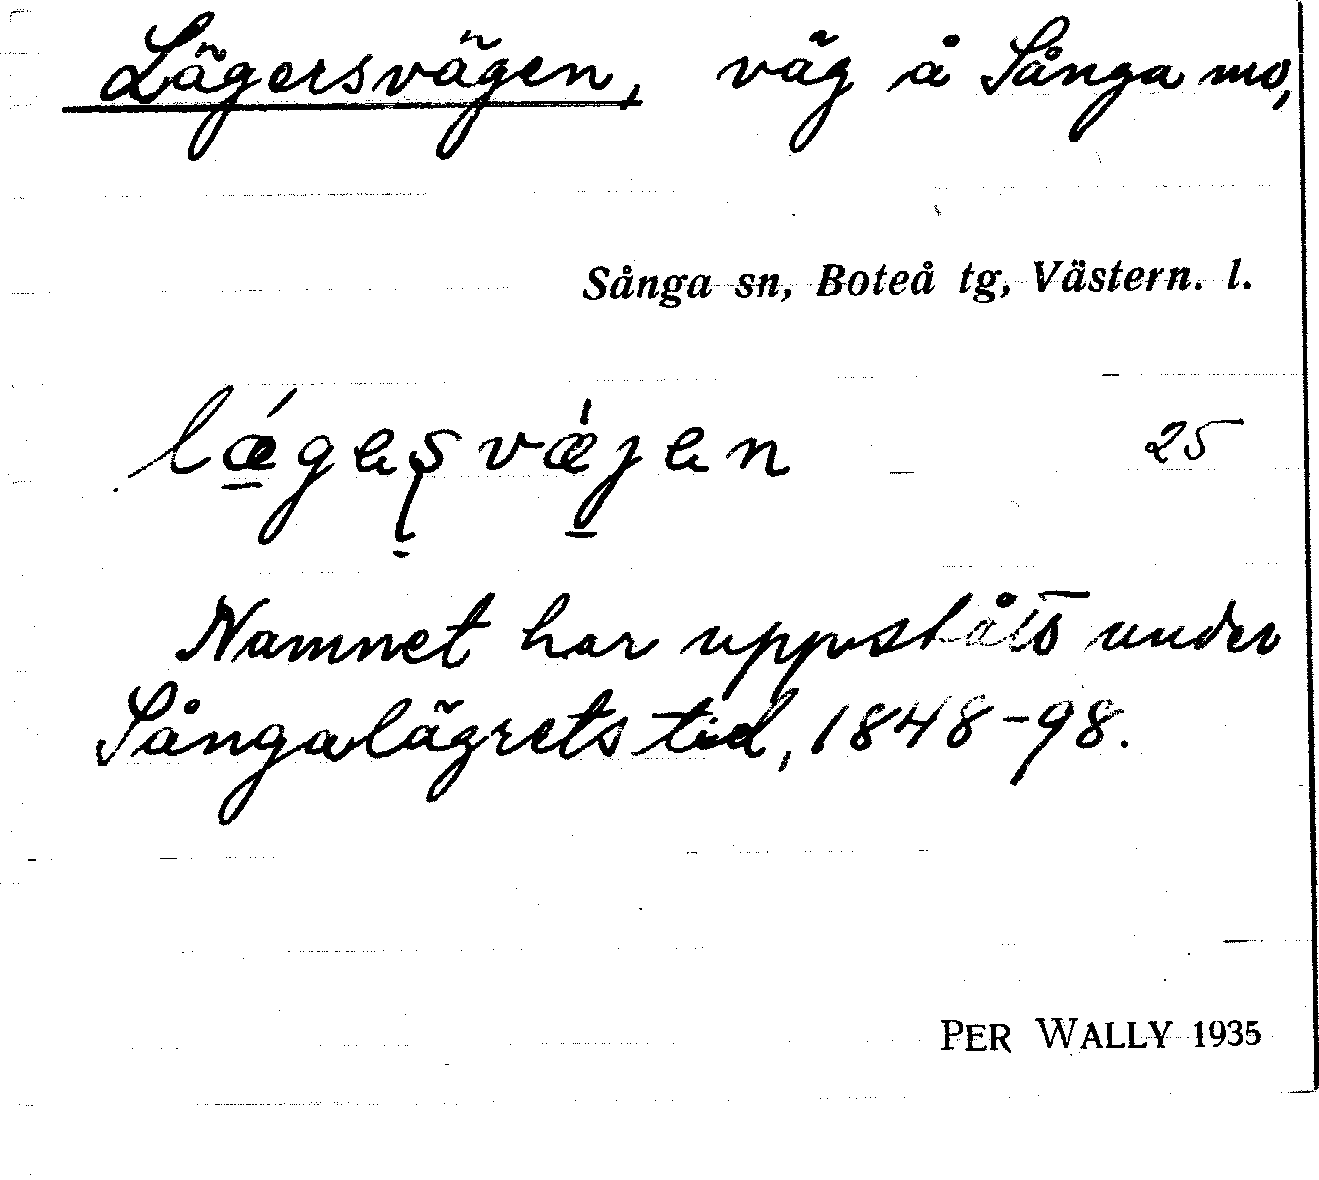 Lägersvägen, väg å Sånga mo,
Sånga sn, Boteå tg, Västern. l.
lǽgeʂvǽjen 25
Namnet har uppståtts under
Sångalägrets tid, 1848-98.
PER WALLY 1935